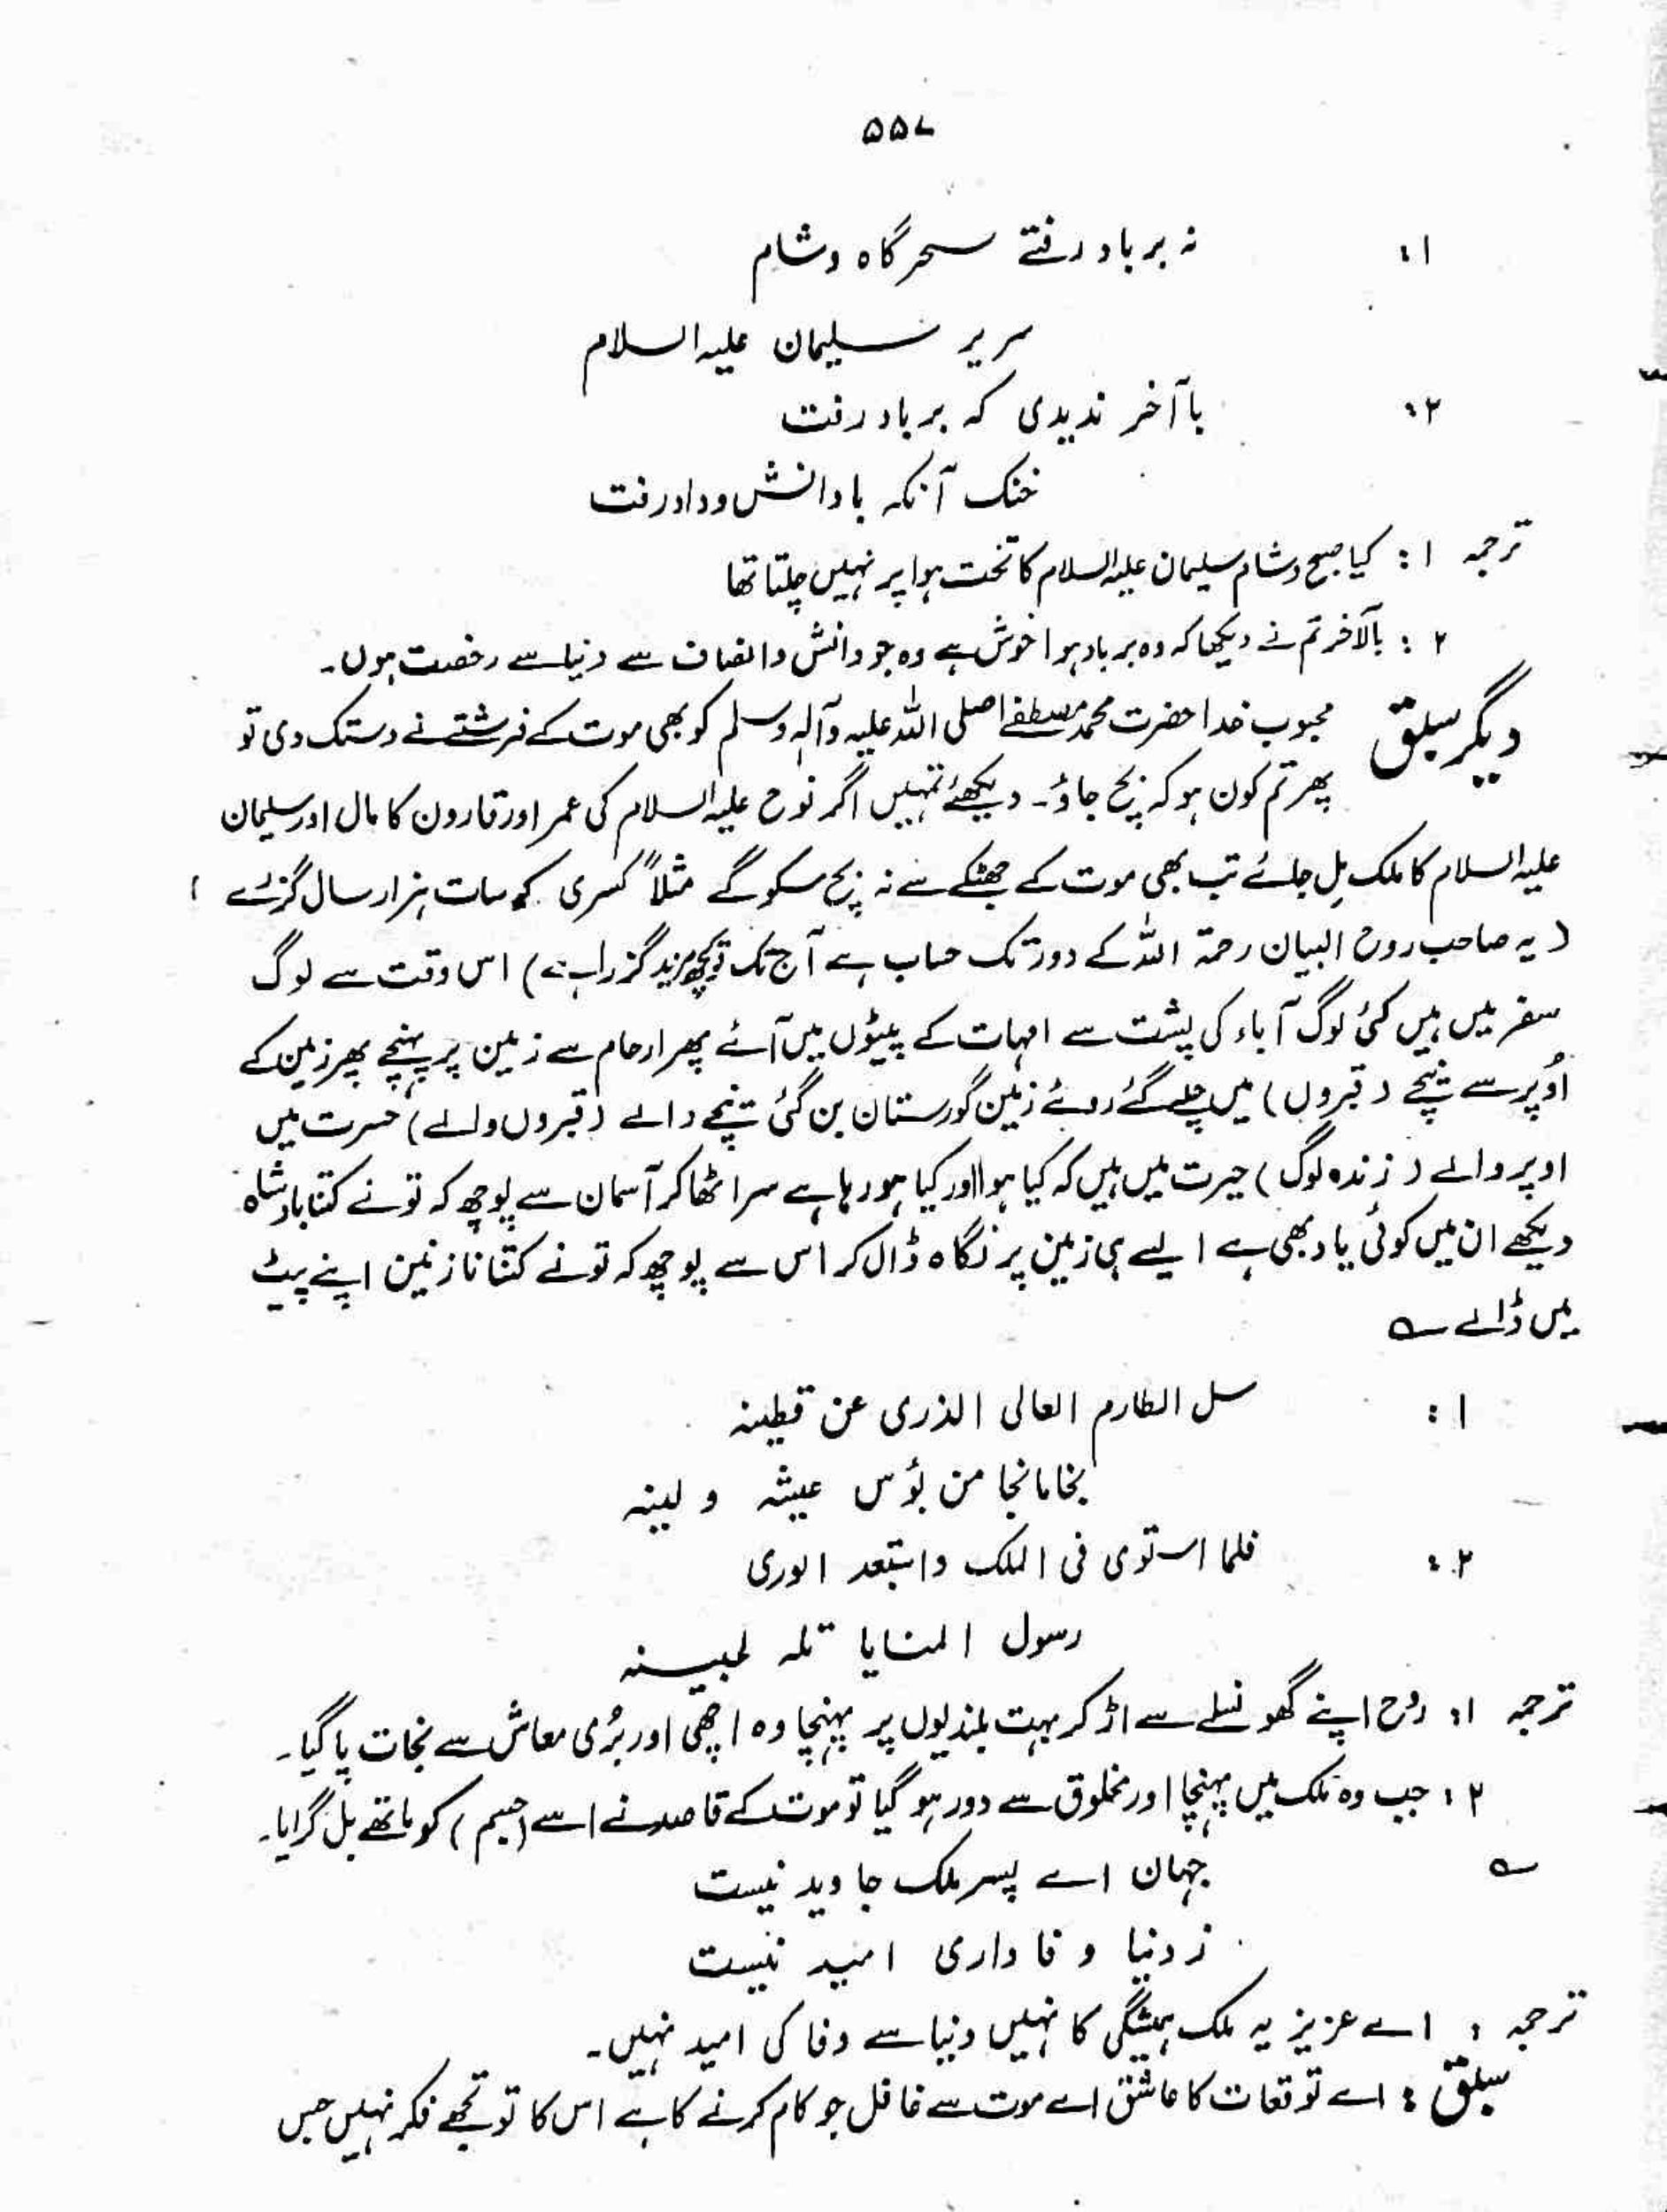 ۵۵۷
۱: نہ بر باد رفتے سحر گاہ و شام
سریر سلیمان علیہ السلام
۲: بآآخر ندیدی کہ بر باد رفت
خنک آنکہ با دانش و داد رفت
ترجمہ ۱: کیا صبح و شام سلیمان علیہ السلام کا تخت ہوا پر نہیں چلتا تھا
۲: بالآخر تم نے دیکھا کہ وہ برباد ہوا خوش ہے وہ جو دانش و انصاف سے دنیا سے رخصت ہوں۔
دیگر سبق محبوب خدا حضرت محمد مصطفےٰ صلی اللہ علیہ وآلہ وسلم کو بھی موت کے فرشتے نے دستک دی تو
پھر تم کون ہو کہ بچ جاؤ۔ دیکھئے تمہیں اگر نوح علیہ السلام کی عمر اور قارون کا مال اور سلیمان
علیہ السلام کا ملک مِل جائے تب بھی موت کے جھٹکے سے نہ بچ سکو گے مثلاً کسری کو سات ہزار سال گزرے
(یہ صاحب روح البیان رحمۃ اللہ کے دور تک حساب ہے آج تک تو کچھ مزید گزرا ہے) اس وقت سے لوگ
سفر میں ہیں کئی لوگ آباء کی پشت سے امہات کے پیٹوں میں آئے پھر ارحام سے زمین پر پہنچے پھر زمین کے
اُوپر سے نیچے (قبروں) میں چلے گئے روئے زمین گورستان بن گئی نیچے والے (قبروں والے) حسرت میں
اوپر والے (زندہ لوگ) حیرت میں ہیں کہ کیا ہوا اور کیا ہو رہا ہے سر اٹھا کر آسمان سے پوچھ کہ تو نے کتنا بادشاہ
دیکھے ان میں کوئی یاد بھی ہے ایسے ہی زمین پر نگاہ ڈال کر اس سے پوچھ کہ تو نے کتنا نازنین اپنے پیٹ
میں ڈالے ؎
۱: سل الطارم العالی الذری عن قطینہ
نجا ما نجا من بؤس عیشہ و لینہ
۲: فلما استوی فی الملک واستبعد الوری
رسول المنایا تلہ لجبینہ
ترجمہ ۱: روح اپنے گھونسلے سے اڑ کر بہت بلندیوں پر پہنچا وہ اچھی اور بُری معاش سے نجات پا گیا۔
۲: جب وہ ملک میں پہنچا اور مخلوق سے دور ہو گیا تو موت کے قاصد نے اسے (جسم) کو ماتھے بل گرایا۔
؎ جہان اے پسر ملک جاوید نیست
ز دنیا وفاداری امید نیست
ترجمہ: اے عزیز یہ ملک ہمیشگی کا نہیں دنیا سے وفا کی امید نہیں۔
سبق: اے توقعات کا عاشق اے موت سے غافل جو کام کرنے کا ہے اس کا تو تجھے فکر نہیں جس